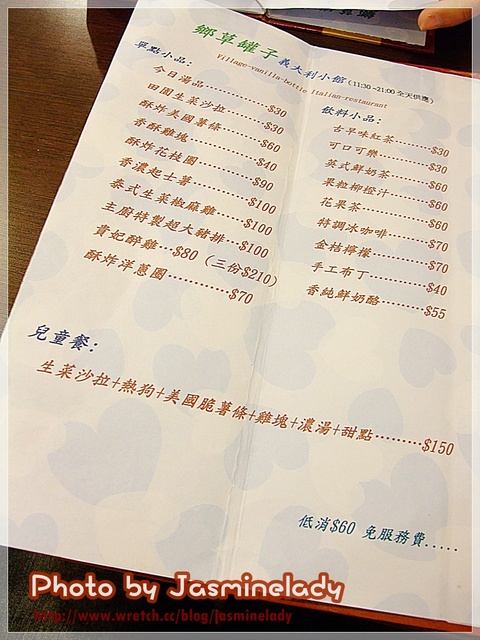 鄉草罐子義大利小館(11:30~21:00 全天供應)
Village-vanilla-bottle Italian-restaurant
單點小品:
今日湯品............$30
田園生菜沙拉........$30
酥炸美國薯條........$60
香酥雞塊............$40
酥炸花枝圈..........$90
香濃起士薯..........$100
泰式生菜椒麻雞......$100
主廚特製超大豬排...$100
貴妃醉雞...$80(三份$210)
酥炸洋蔥圈..........$70
飲料小品:
古早味紅茶........$30
可口可樂..........$30
英式鮮奶茶........$60
果粒柳橙汁........$60
花果茶............$60
特調冰咖啡........$70
金桔檸檬..........$70
手工布丁..........$40
香純鮮奶酪........$55
兒童餐:
生菜沙拉+熱狗+美國脆薯條+雞塊+濃湯+甜點........$150
低消$60 免服務費.....
Photo by Jasminelady
http://www.wretch.cc/blog/jasminelady